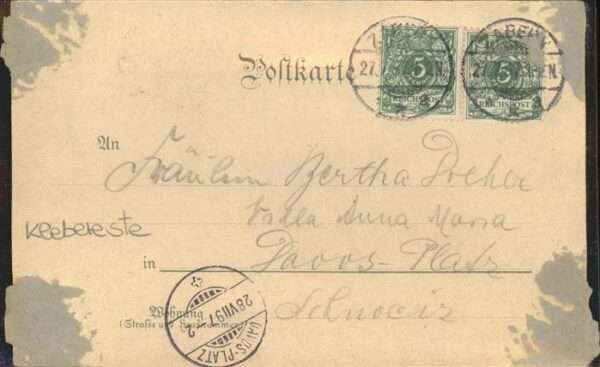 Postkarte
ZABERN
27.
5
REICHSPOST
ZABERN
27.
5
REICHSPOST
An
Fräulein Bertha Dreher
Villa Anna Maria
Klebereste
in Davos-Platz
Wohnung
(Straße und Hausnummer)
Schweiz
28 VII 97
DAVOS-PLATZ